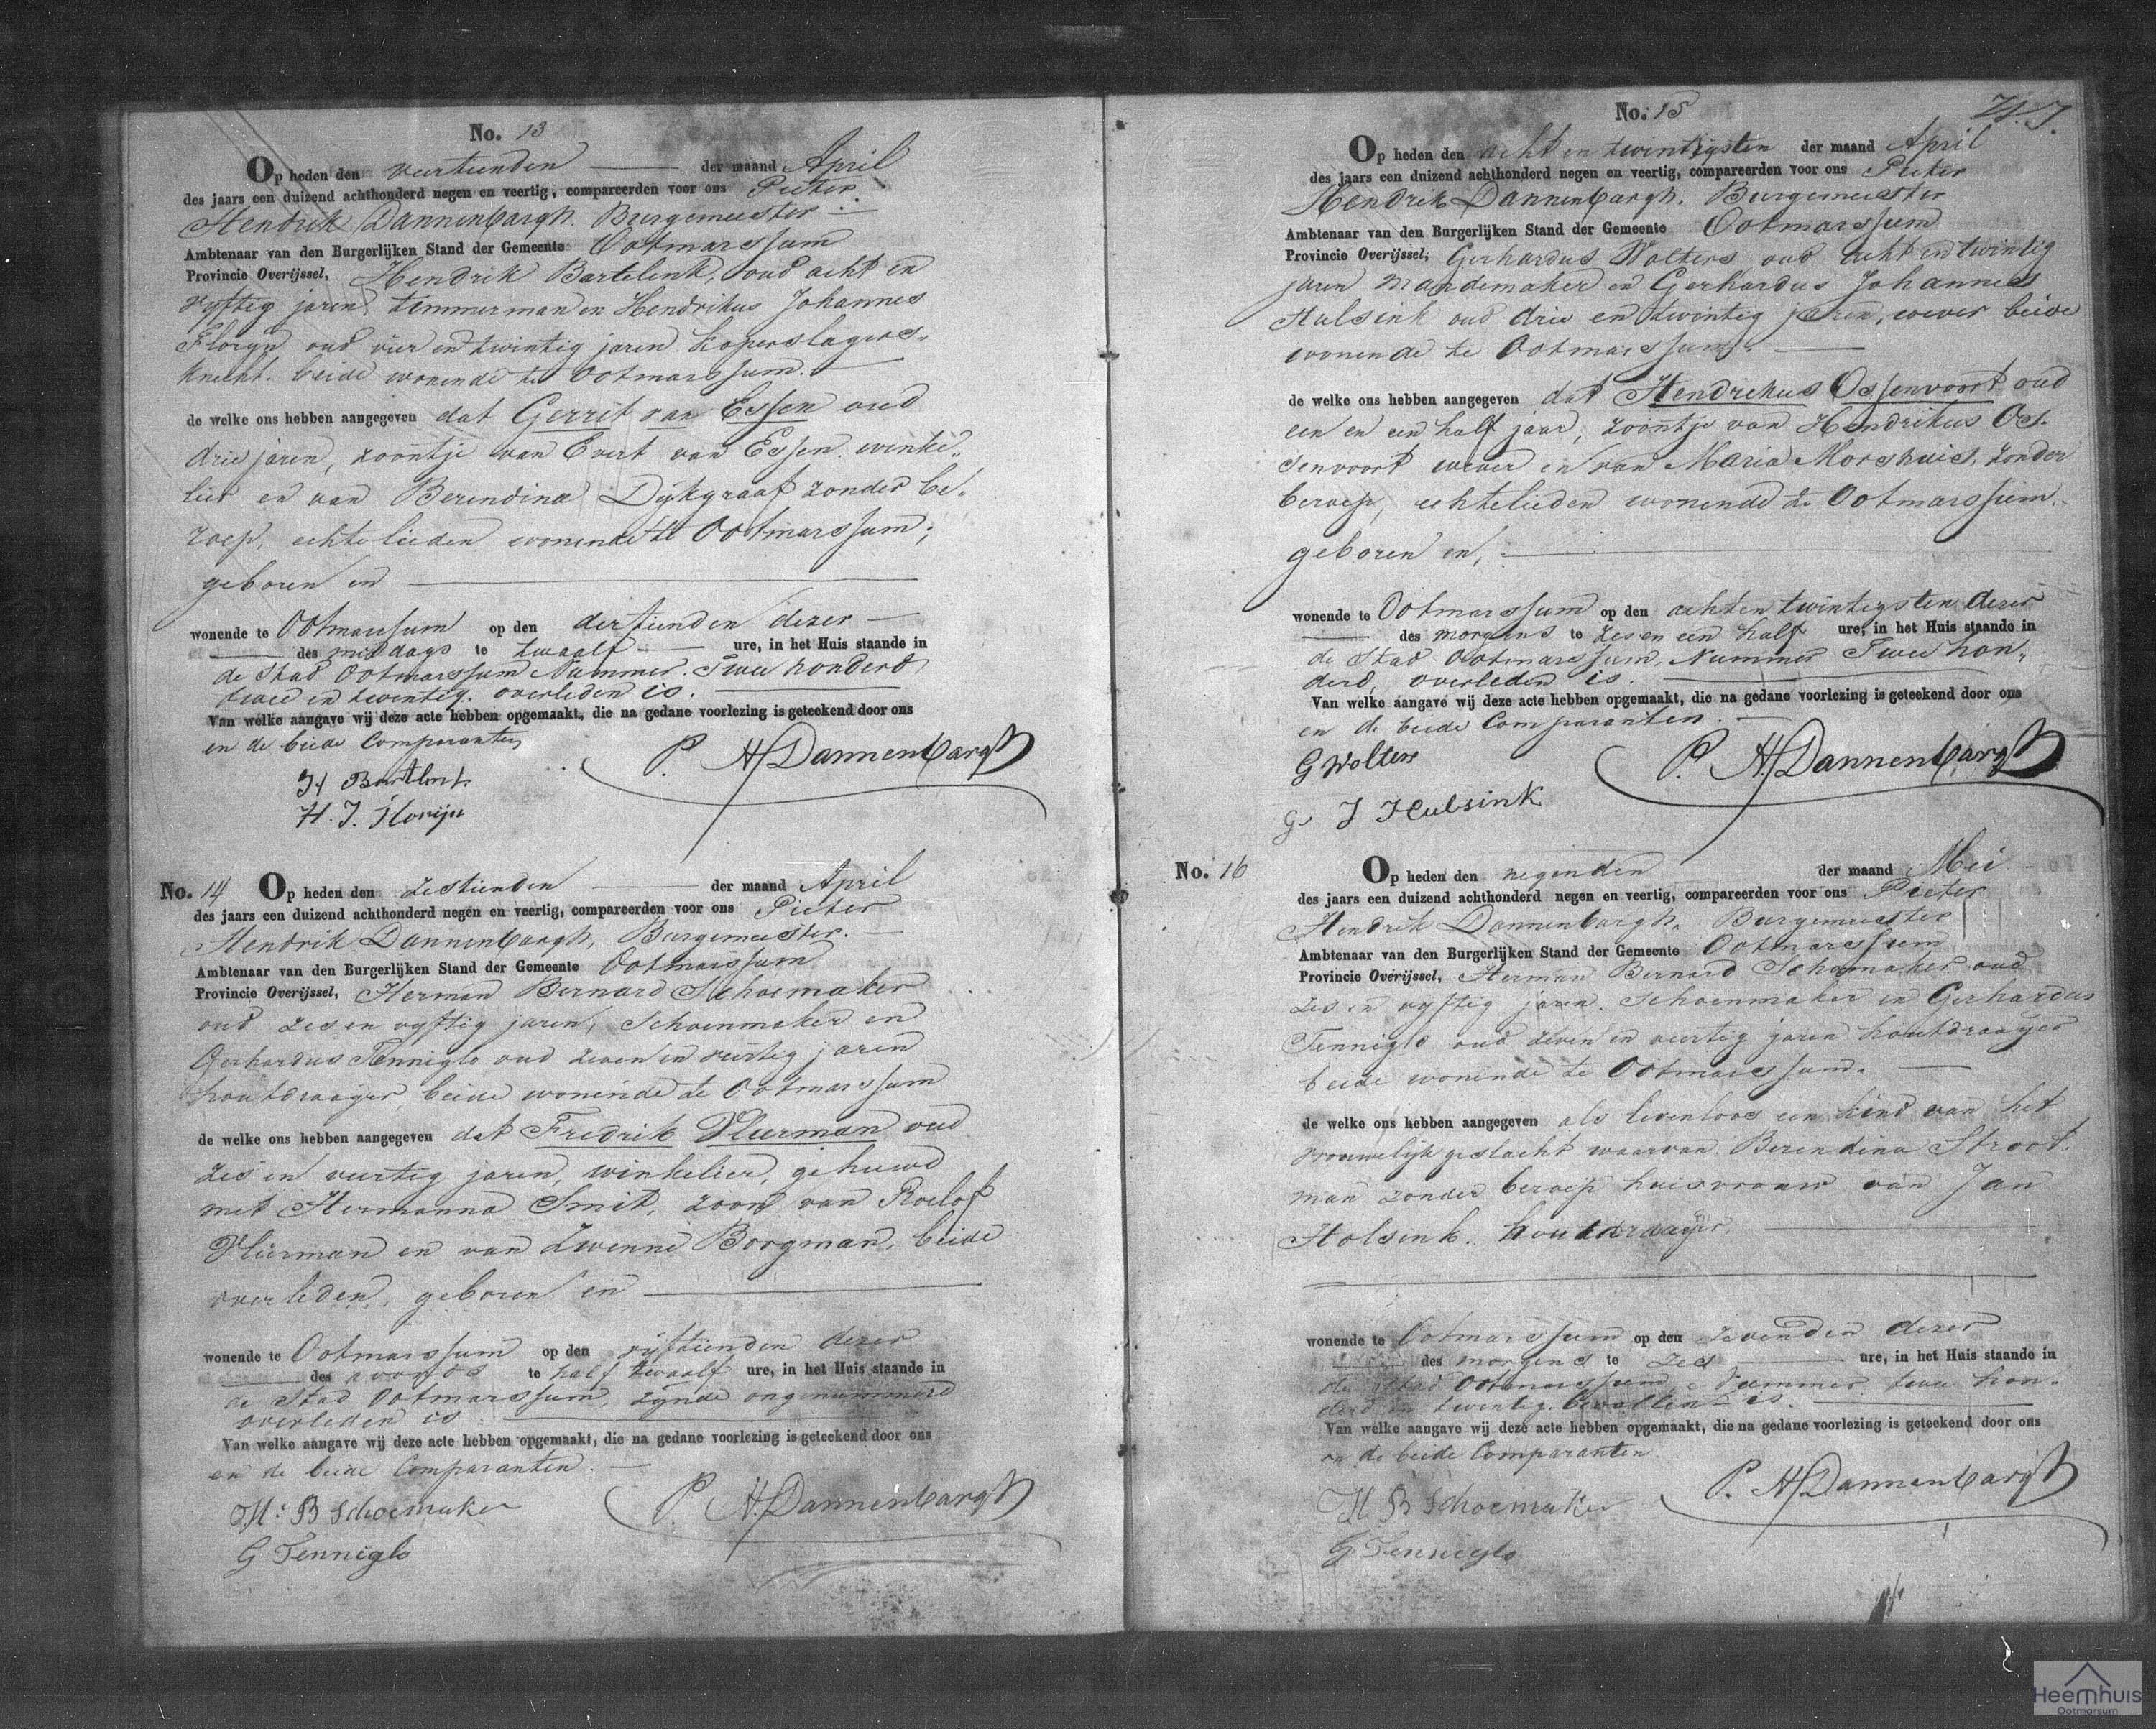 No. 13
Op heden den veertienden der maand April
des jaars een duizend achthonderd negen en veertig, compareerden voor ons Pieter
Hendrik Dannenbargh. Burgemeester
Ambtenaar van den Burgerlijken Stand der Gemeente Ootmarssum
Provincie Overijssel, Hendrik Bartelink, oud acht en
vyftig jaren timmerman en Hendrikus Johannes
Floryn oud vier en twintig jaren koperslagers-
knecht. beide wonende te Ootmarssum.
de welke ons hebben aangegeven dat Gerrit van Essen oud
drie jaren, zoontje van Evert van Essen winke-
lier en van Berendina Dykgraaf zonder be-
roep, echtelieden wonende te Ootmarssum;
geboren en
wonende te Ootmarssum op den dertienden dezer
des middags te twaalf ure, in het Huis staande in
de Stad Ootmarssum Nummer Twee honderd
twee en twintig. overleden is.
Van welke aangave wij deze acte hebben opgemaakt, die na gedane voorlezing is geteekend door ons
en de beide Comparanten
P. H. Dannenbargh
H. J. Florijn
No. 14 Op heden den zestienden der maand April
des jaars een duizend achthonderd negen en veertig, compareerden voor ons Pieter
Hendrik Dannenbargh, Burgemeester.
Ambtenaar van den Burgerlijken Stand der Gemeente Ootmarssum
Provincie Overijssel, Herman Bernard Schoemaker
oud zes en vyftig jaren, Schoenmaker en
Gerhardus Tenniglo oud zeven en veertig jaren
houtdraayer, beide wonende te Ootmarssum
de welke ons hebben aangegeven dat Fredrik Vlierman oud
zes en veertig jaren, winkelier, gehuwd
met Hermanna Smit, zoon van Roelof
Vlierman en van Zwenne Borgman, beide
overleden, geboren en
wonende te Ootmarssum op den vyftienden dezer
des avonds te half twaalf ure, in het Huis staande in
de Stad Ootmarssum, zynde ongenummerd
overleden is
Van welke aangave wij deze acte hebben opgemaakt, die na gedane voorlezing is geteekend door ons
en de beide Comparanten.
H. B Schoemaker
P. H. Dannenbargh
G Tenniglo
No. 15
Op heden den acht en twintigsten der maand April
des jaars een duizend achthonderd negen en veertig, compareerden voor ons Pieter
Hendrik Dannenbargh. Burgemeester
Ambtenaar van den Burgerlijken Stand der Gemeente Ootmarssum
Provincie Overijssel, Gerhardus Wolters oud acht en twintig
jaren mandemaker en Gerhardus Johannes
Hulsink oud drie en twintig jaren, wever beide
wonende te Ootmarssum.
de welke ons hebben aangegeven dat Hendrikus Ossenvoort oud
een en een half jaar, zoontje van Hendrikus Os-
senvoort wever en van Maria Morshuis, zonder
beroep, echtelieden wonende te Ootmarssum.
geboren en,
wonende te Ootmarssum op den acht en twintigsten dezer
des morgens te zes en een half ure, in het Huis staande in
de Stad Ootmarssum, Nummer Twee hon-
derd, overleden is.
Van welke aangave wij deze acte hebben opgemaakt, die na gedane voorlezing is geteekend door ons
en de beide Comparanten.
G Wolters
P. H. Dannenbargh
G J Hulsink
No. 16 Op heden den negenden der maand Mei
des jaars een duizend achthonderd negen en veertig, compareerden voor ons Pieter
Hendrik Dannenbargh. Burgemeester
Ambtenaar van den Burgerlijken Stand der Gemeente Ootmarssum
Provincie Overijssel, Herman Bernard Schoemaker oud
zes en vyftig jaren. Schoenmaker en Gerhardus
Tenniglo oud zeven en veertig jaren houtdraayer
beide wonende te Ootmarssum.
de welke ons hebben aangegeven als levenloos een kind van het
vrouwelyk geslacht waarvan Berendina Stroot-
man zonder beroep huisvrouw van Jan
Holsink. houtdraayer.
wonende te Ootmarssum op den zevenden dezer
des morgens te zes ure, in het Huis staande in
de Stad Ootmarssum Nummer twee hon-
derd en twintig bevallen is.
Van welke aangave wij deze acte hebben opgemaakt, die na gedane voorlezing is geteekend door ons
en de beide Comparanten.
H B Schoemaker
P. H. Dannenbargh
G Tenniglo
Heemhuis
Ootmarsum